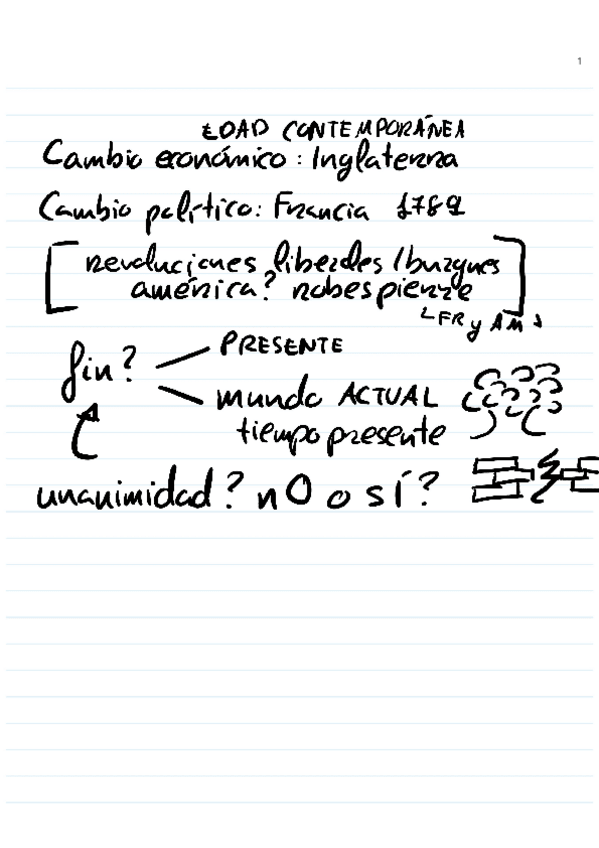 1
EDAD CONTEMPORÁNEA
Cambio económico: Inglaterra
Cambio político: Francia 1789
[revoluciones liberales/burgues
américa? robespierre]
FR y AM
fin? PRESENTE
mundo ACTUAL
tiempo presente
unanimidad? nO o sí?